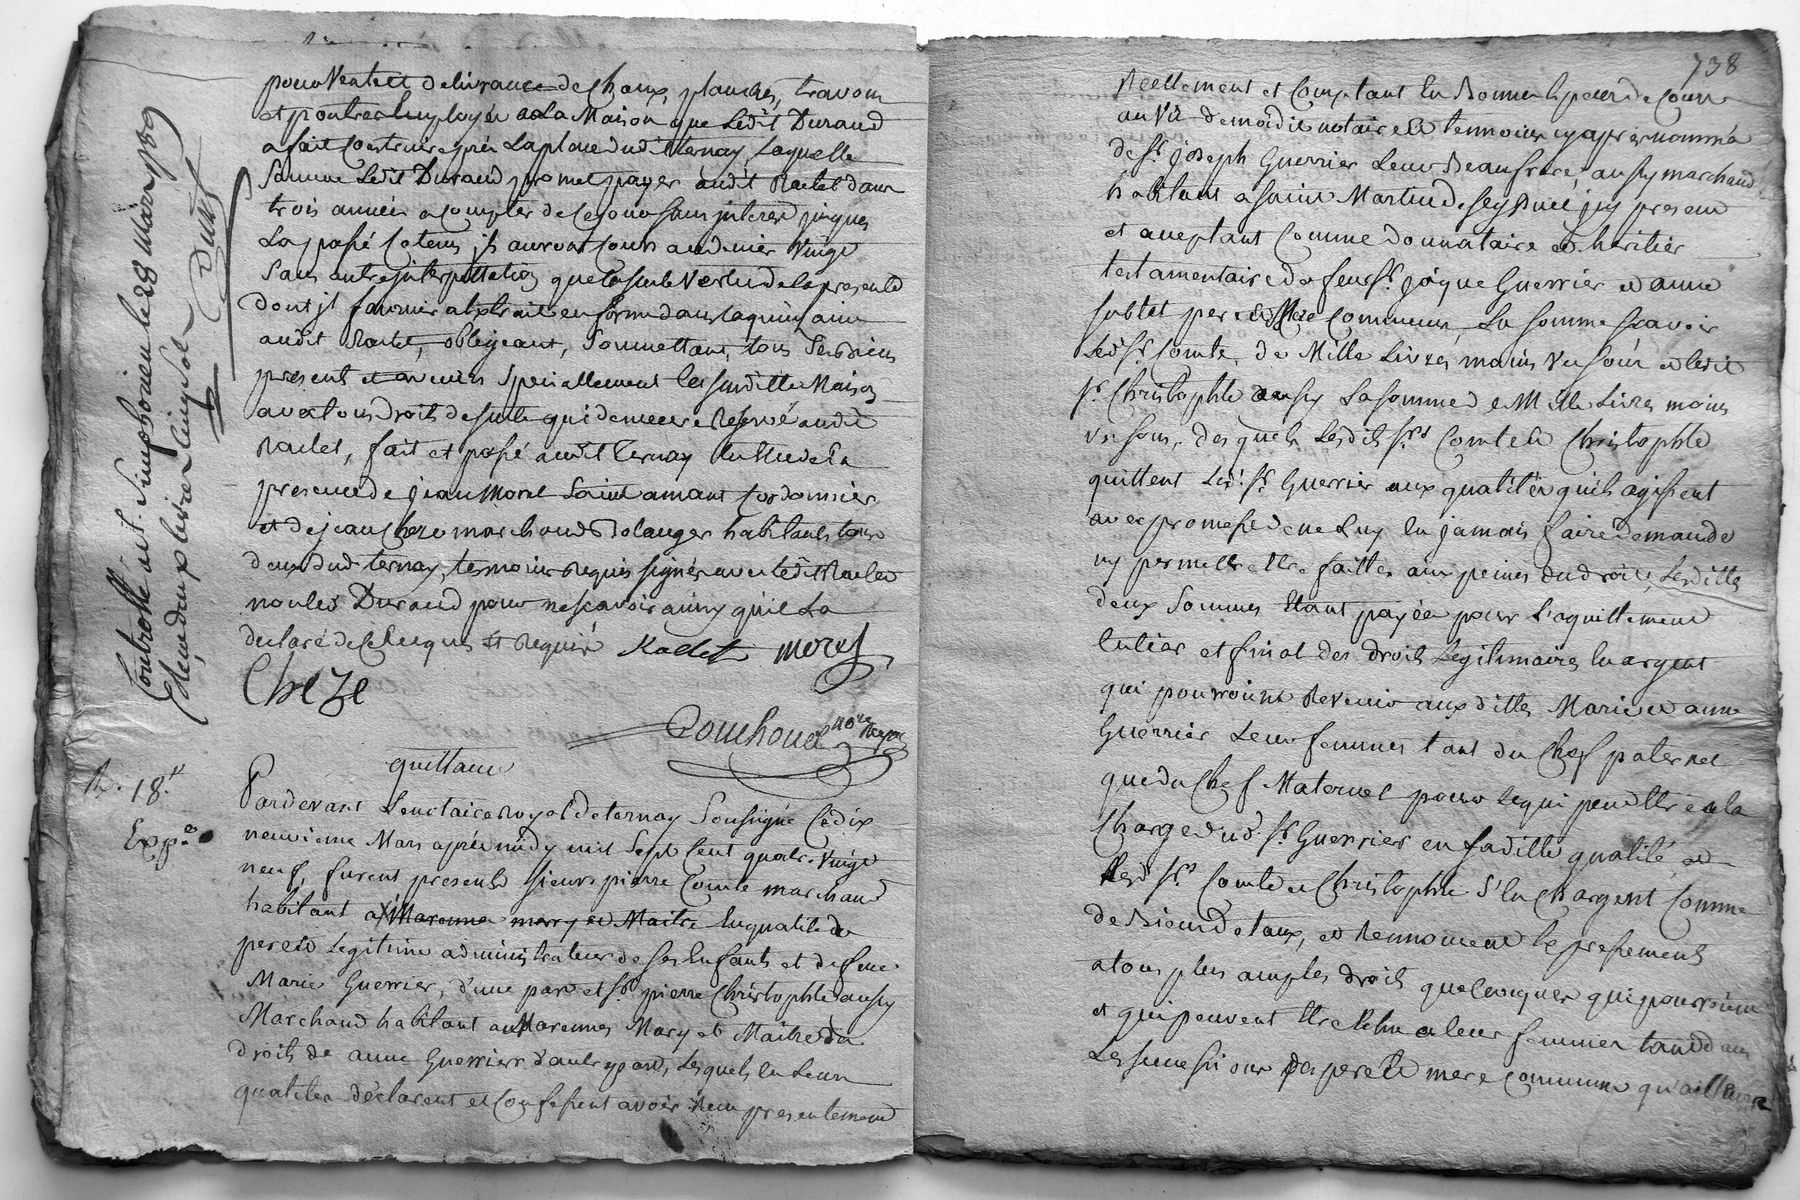 pour Vente et delivrance de Chaux, planches, travons
et poutres Employés a La Maison que Ledit Durand
a fait Construire prés La place dudit ternay, Laquelle
Somme Ledit Durand promet payer audit Ractet dans
trois années a compter de ce jour sans jnteres jusques
La passé Ce tems jls auront Cours au denier Vingt
Sans autre jnterpellation que la seule Vertu de la presente
dont jl fournira Extrait en forme dans la quinzaine
audit Ractet, obligeant, Soumettant, tous Ses Biens
présents et avenirs Speciallement la susditte Maison
avec tous droits de suite qui demeure Reservé audit
Ractet, fait et passé audit Ternay En l'Etude En
presence de jean Morel Saint amant Cordonnier
et de jean Cheze marchand Bolanger habitants tous
deux dud. ternay, temoins Requis signés avec Ledit Ractet
non led. Durand pour ne scavoir ainsy qu'il La
declaré de Ce Enquis Et Requis Ractet morel
Cheze
Pouchon no.re Royal
Controllé a St. Simphorien le 28 Mars 1789
Reçu deux livres cinq sol
quittance
N. 18.
Exp.e
Pardevant Le notaire royal de ternay Soussigné Ce dix
neuvieme Mars aprés midy mil Sept Cent quatre Vingt
neuf, furent presents sieurs pierre Comte marchand
habitant a Marenne mary et Maitre En qualité de
pere et Legitime administrateur de ses Enfants et de feue
Marie Guerrier, d'une part et sr. pierre Christophle aussy
Marchand habitant a Marennes Mary et Maitre des
droits de anne Guerrier d'autre part, Lesquels En Leurs
qualités déclarent et Confessent avoir Reçu presentement
738
Reellement et Comptant En Bonnes Especes de Cours
au Vû de moidit notaire Et temoins cy aprés nommés
de sr. joseph Guerrier Leur Beaufrere, aussy marchand
habitant a saint Martin de seyssuel jcy present
et acceptant Comme donnataire et heritier
testamentaire de feu sr. jacque Guerrier et anne
pere Et Mere Communs, La Somme scavoir
Led. sr. Comte, de Mille Livres, moins Un sou et ledit
sr. Christophle aussy La somme de Mille Livres moins
Un sous, des quels Lesdits srs Comte Et Christophle
quittent Led. sr. Guerrier aux qualités qu'ils agissent
avec promesse de ne Luy En jamais faire demande
ny permettre Etre faittes aux peines du droit, Lesdittes
deux Sommes Etant payées pour L'aquittement
Entier et final des droits Legitimaires En argent
qui pourroint Revenir aux dittes Marie et anne
Guerrier Leur femmes tant du Chef paternel
que du Chef Maternel pour Ce qui peut Etre a la
Charge dud. sr. Guerrier en saditte qualité, et
Lesd. srs. Comte et Christophle S'En Chargent Comme
de Biens d'Eaux, et Rennoncent Expressement
a tous plus amples droits quelconques qui pourroient
et qui peuvent Etre Echu a leur femmes tant dans
Les successions des pere Et mere communs qu'ailleurs